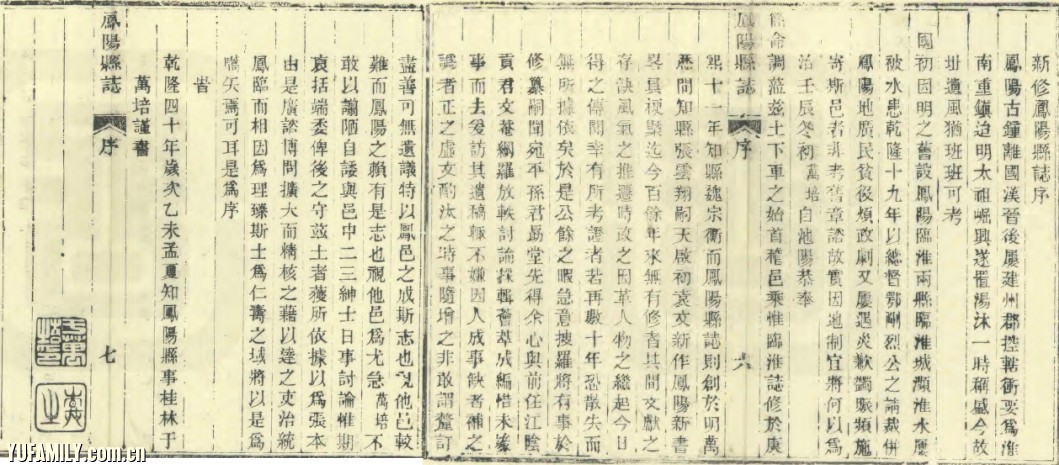 新修鳳陽縣誌序
鳳陽古鍾離國漢晉後屢建州郡控轄衝要爲淮
南重鎮迨明太祖崛興遂置湯沐一時稱盛今故
址遺風猶班班可考
國初因明之舊設鳳陽臨淮兩縣臨淮城瀕淮水屢
被水患乾隆十九年以總督鄂剛烈公之請裁併
鳳陽地廣民貧役煩政劇又屢遇災歉蠲賑頻施
寄斯邑者非考舊章諮故實因地制宜將何以爲
治壬辰冬初萬培自池陽恭奉
簡命調蒞茲土下車之始首稽邑乘惟臨淮誌修於康
熙十一年知縣魏宗衡而鳳陽縣誌則創於明萬
歷間知縣張雲翔嗣天啟初袁文新作鳳陽新書
畧具梗槩迄今百餘年來無有修者其間文獻之
存缺風氣之推遷時政之因革人物之繼起今日
得之傳聞幸有所考證者若再數十年恐散失而
無所據依矣於是公餘之暇急意披羅將有事於
修纂嗣聞宛平孫君勗堂先得余心與前任江陰
貢君文菴網羅放軼討論採輯薈萃成編惜未蕆
事而去爰訪其遺稿輒不嫌因人成事缺者補之
譌者正之虛文酌汰之時事隨增之非敢謂釐訂
盡善可無遺議特以鳳邑之成斯志也視他邑較
難而鳳陽之賴有是志也視他邑爲尤急萬培不
敢以譾陋自諉與邑中二三紳士日事討論惟期
裒括端委俾後之守茲土者獲所依據以爲張本
由是廣諮博問擴大而精核之藉以達之吏治統
鳳臨而相因爲理臻斯士爲仁壽之域將以是爲
嚆矢焉可耳是爲序
旹
乾隆四十年歲次乙未孟夏知鳳陽縣事桂林于
萬培謹書
鳳陽縣誌
序
六
鳳陽縣誌
序
七
YUFAMILY.com.cn